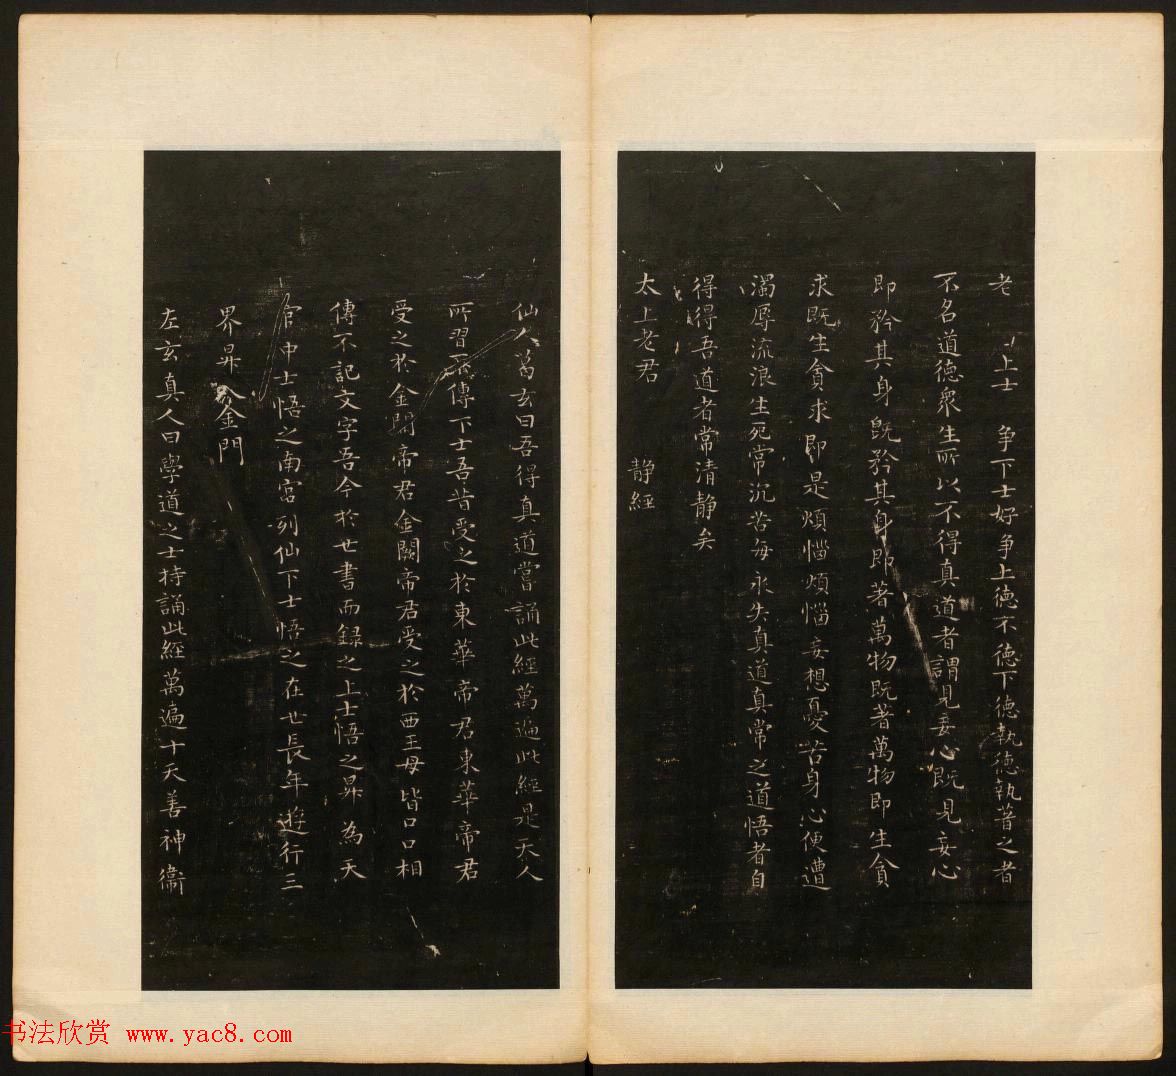 老 上士 争下士好争上德不德下德執德執著之者
不名道德衆生所以不得真道者謂見妄心既見妄心
即矜其身既矜其身即著萬物既著萬物即生貪
求既生貪求即是煩惱煩惱妄想憂苦身心便遭
濁辱流浪生死常沉苦海永失真道真常之道悟者自
得得吾道者常清静矣
太上老君 静經
仙人葛玄曰吾得真道嘗誦此經萬遍此經是天人
所習不傳下士吾昔受之於東華帝君東華帝君
受之於金闕帝君金闕帝君受之於西王母皆口口相
傳不記文字吾今於世書而録之上士悟之昇為天
官中士悟之南宫列仙下士悟之在世長年遊行三
界昇入金門
左玄真人曰學道之士持誦此經萬遍十天善神衞
书法欣赏 www.yac8.com